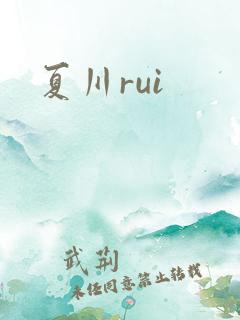 夏川rui
武荊
未经同意禁止转载